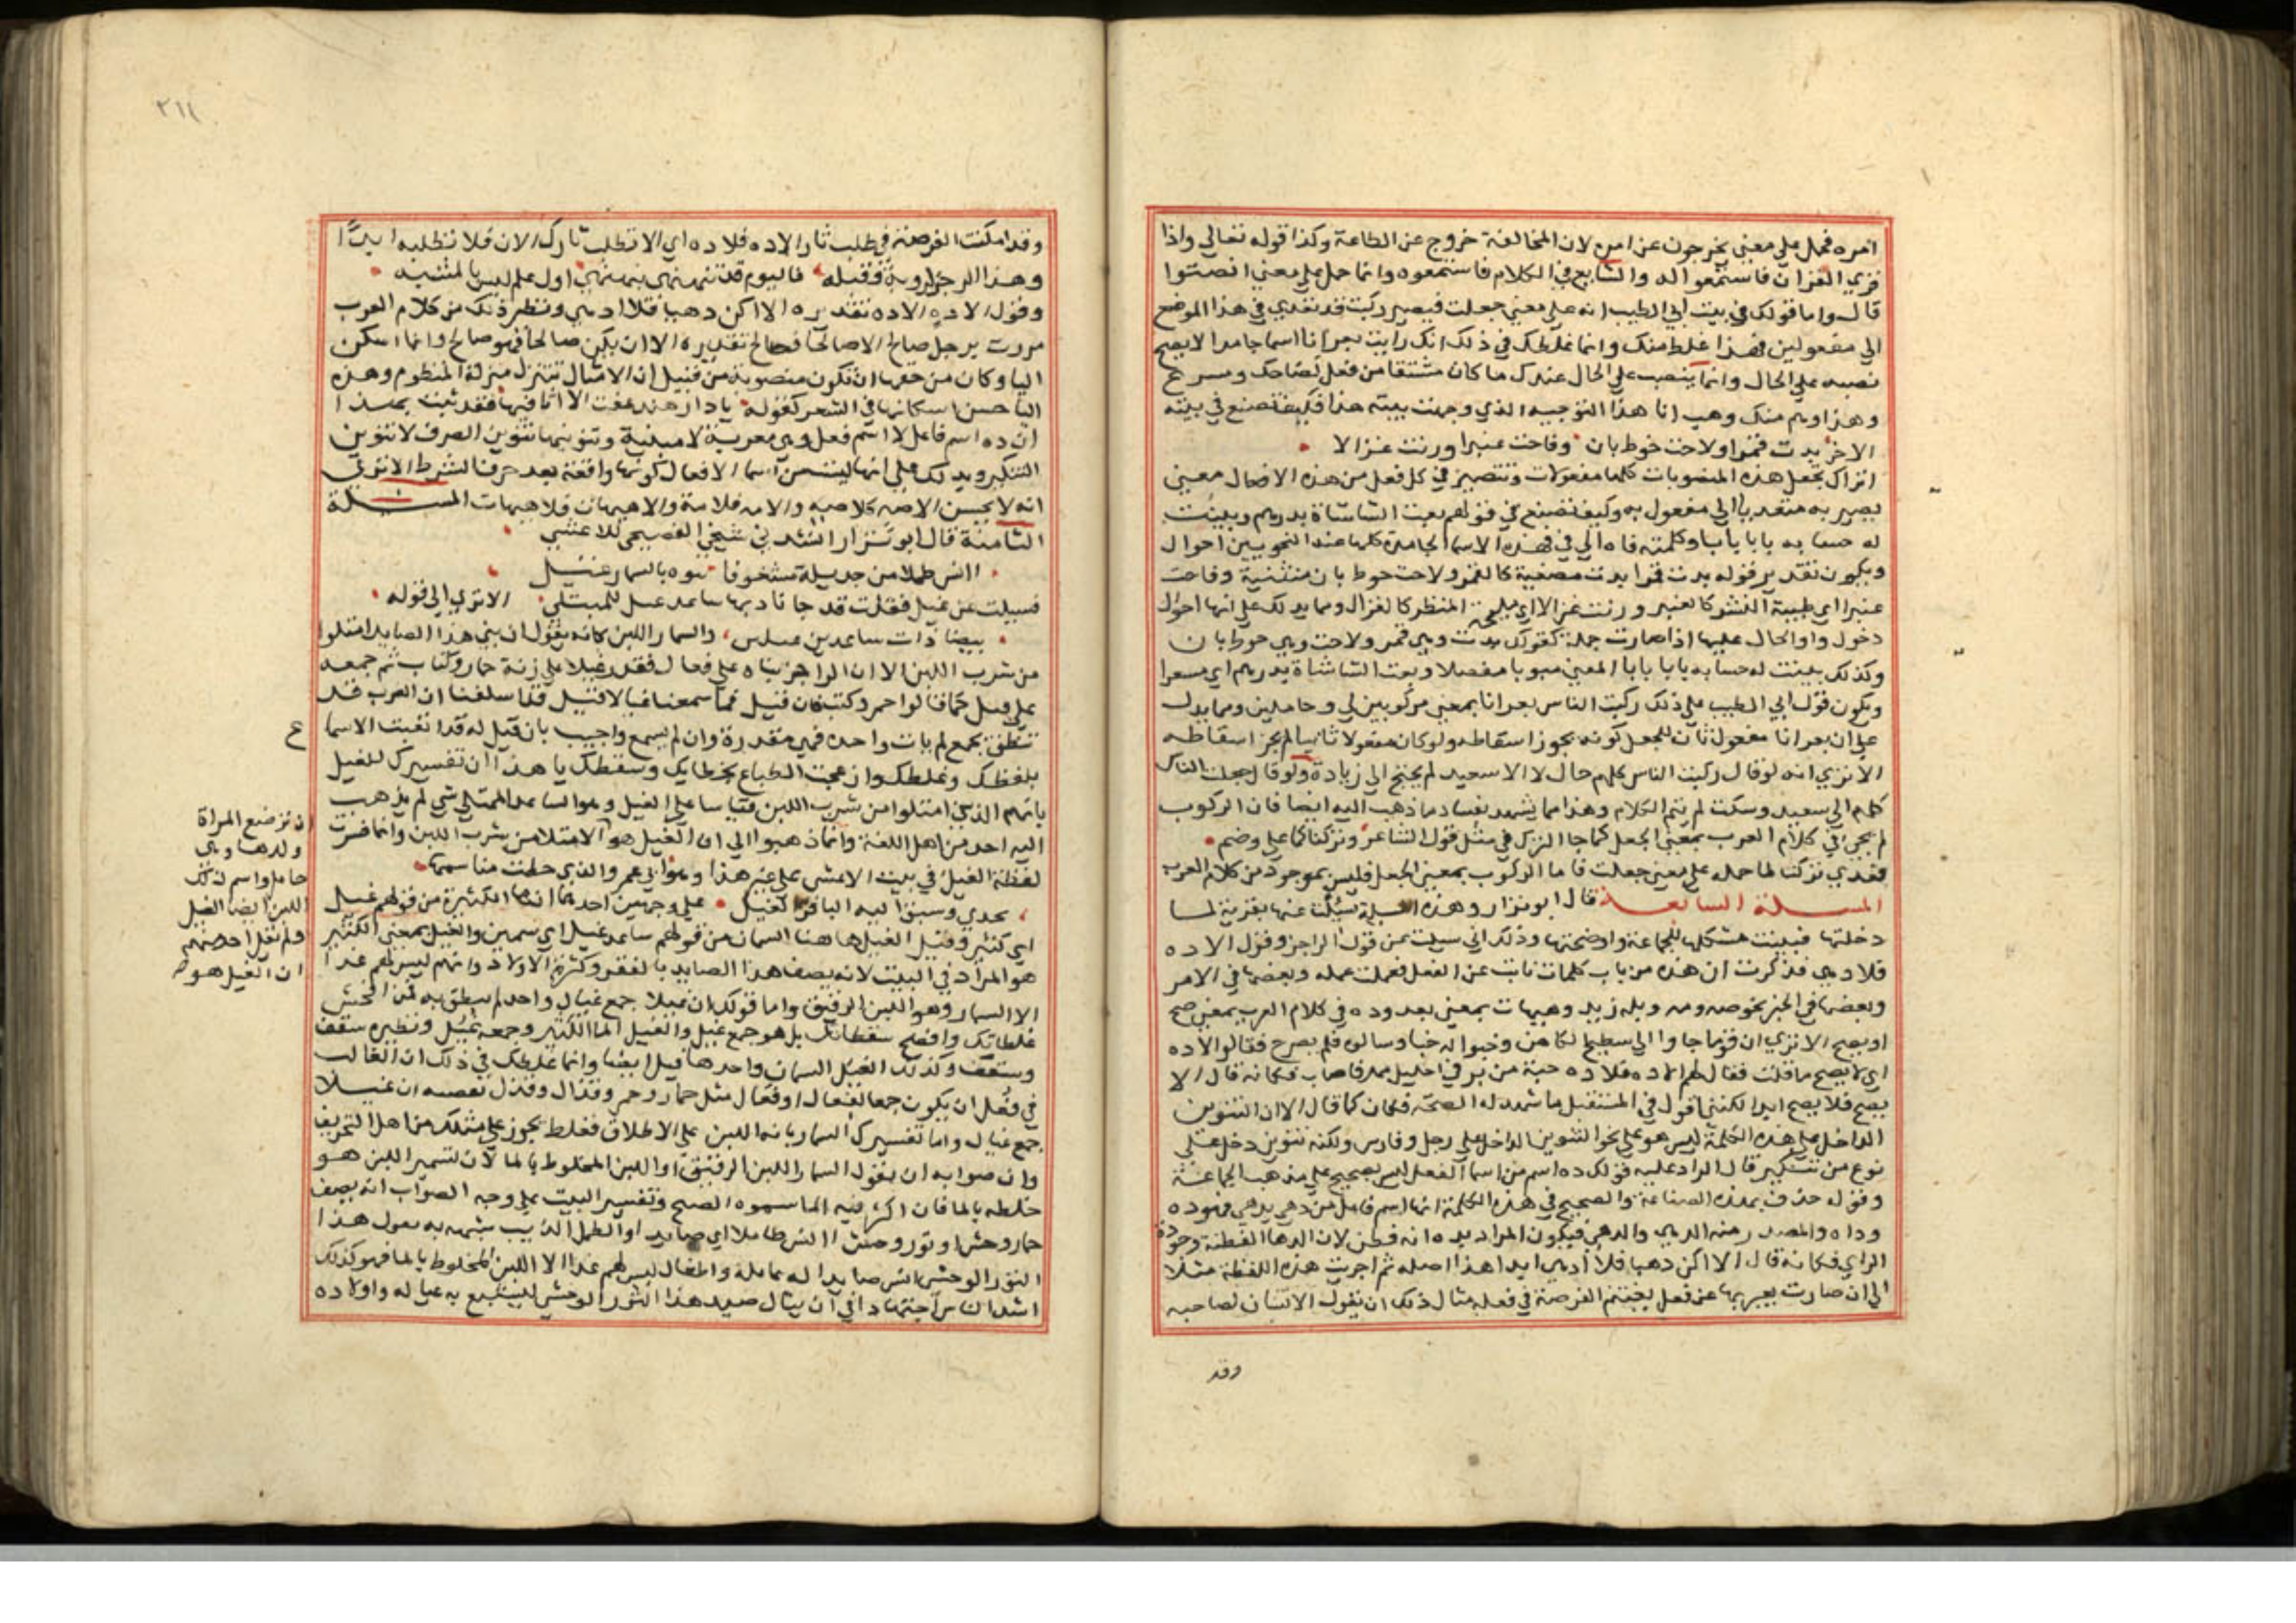 امره فحمل علي معني يخرجون عن امره لان المخالفة خروج عن الطاعة وكذا قوله تعالي واذا
قري القران فاستمعوا له والشايع في الكلام فاستمعوه وانما حمل علي معني انصتوا
قال واما قولك في بيت ابي الطيب انه علي معني جعلت فيصير ركبت قد تعدي في هذا الموضع
الي مفعولين فهذا غلط منك وانما غلطك في ذلك انك رايت بعرانا اسما جامدا لا يصح
نصبه علي الحال وانما ينصب علي الحال عندك ما كان مشتقا من فعل كضاحك ومسرع
وهذا وهم منك وهب انا هذا التوجيه الذي وجهت بيته هذا فكيف تصنع في بيته
الاخر بدت قمرا ولاحت خوط بان وفاحت عنبرا ورنت غزالا
اتراك تجعل هذه المنصوبات كلها مفعولات وتتصير في كل فعل من هذه الافعال معني
يصير به متعديا الي مفعول به وكيف تصنع في قولهم بعت الشا شاة بدرهم وبينت
له حسابه بابا بابا وكلمته فاه الي في فهذه الاسما الجامدة كلها عند النحويين احوال
ويكون تقدير قوله بدت قمرا بدت مضيية كالقمر ولاحت خوط بان متثنية وفاحت
عنبرا اي طيبة النشر كالعنبر ورنت غزالا اي مليحة المنظر كالغزال ومما يدلك علي انها احوال
دخول واو الحال عليها اذا صارت جملة كقولك بدت وهي قمر ولاحت وهي خوط بان
وكذلك بينت له حسابه بابا بابا المعني مبوبا مفصلا وبعت الشا شاة بدرهم اي مسعرا
ويكون قول ابي الطيب علي ذلك ركبت الناس بعرانا بمعني مركوبين لي وحاملين ومما يدل
علي ان بعرانا مفعول ثان للجعل كونه يجوز اسقاطه ولو كان مفعولا ثانيا لم يجز اسقاطه
الا تري انه لو قال ركبت الناس كلهم حال لا الا سعيد لم يحتج الي زيادة ولو قال جعلت الناس
كلهم الي سعيد وسكت لم يتم الكلام وهذا مما يشهد بفساد ما ذهب اليه ايضا فان الركوب
لم يجئ في كلام العرب بمعني الجعل كما جا الترك في مثل قول الشاعر وتركنا كما علي وضم
فعدي تركنا لما حمله علي معني جعلت فاما الركوب بمعني الجعل فليس بموجود من كلام العرب
المسلة السابعة قال ابو نزار وهذه المسلة سئلت عنها بغزنة لما
دخلتها فبينت مشكلها للجماعة واوضحتها وذلك اني سيلت عن قول الراجز وقول الاده
فلا دهي فذكرت ان هذه من باب كلمات نابت عن الفعل فعملت عمله وبعضها في الامر
وبعضها في الخبر نحو صه ومه وبله زيد وهيهات بمعني بعد وده في كلام العرب بمعني صح
او يصح الا تري ان قوما جاوا الي سطيح الكاهن وخبوا له خبا وسالوه فلم يصرح فقالوا لاده
اي لا يصح ما قلت فقال لهم الاده فلا ده حبة من بر في احليل مهر فاصاب فكانه قال الا
يصح فلا يصح ابدا لكنني اقول في المستقبل ما شهد له الصحة فكان كما قال الا ان التنوين
الداخل علي هذه الكلمة ليس هو علي نحو التنوين الداخل علي رجل وفارس ولكنه تنوين دخل علي
نوع من تنكير قال الراد عليه قولك ده اسم من اسما الفعل ليس بصحيح علي مذهب الجماعة
وقوله حذف بمدة الصناعة والصحيح في هذه الكلمة انها اسم فاعل من دهي يدهي فهو ده
وداه والمصدر منه الدهي والدهي فيكون المراد بده انه فطن لان الدها الفطنة وجودة
الراي فكانه قال الا اكن دهيا فلا ادهي ابدا هذا اصله ثم اجريت هذه اللفظة مثلا
الي ان صارت يعبر بها عن فعل يغتنم الفرصة في فعله مثال ذلك ان يقول الانسان لصاحبه
وقد
٢١٤
وقد امكنت الفرصة في طلب ثار الاده فلا ده اي الا تطلب ثارك الان فلا تطلبه ابدا
وهذا الرجز لروبة وقبله فاليوم قد نهنهني تنهنهي اول حلم ليس بالمسفه
وقول الاده الاده تقديره الا اكن دهيا فلا ادهي ونظير ذلك من كلام العرب
مررت برجل صالح الا صالحا فصالح تقديره الا ان يكن صالحا فهو صالح وانما اسكن
اليا وكان من حقها ان تكون منصوبة من قبيل ان الامثال تتنزل منزلة المنظوم وهذه
اليا حسن اسكانها في الشعر كقوله يا دار هند عفت الا اثافيها فقد ثبت بهذا
ان ده اسم فاعل لا اسم فعل وهي معربة لا مبنية وتنوينها تنوين الصرف لا تنوين
التنكير ويدلك علي انها ليست من اسما الافعال كونها واقعة بعد حرف الشرط الا تري
انه لا يحسن الا صه فلا صه والا مه فلا مه والا هيهات فلا هيهات المسلة
الثامنة قال ابو نزار انشدني شيخي الفصيحي للاعشي
اانس طملا من جديلة مشغوفا بنوه بالسمار غيل
فسيلت عن غيل فقلت قد جا نادبها ساعد غيل للممتلي الا تري الي قوله
بيضا ذات ساعدين غيلين والسمار اللبن كانه يقول ان بني هذا الصايد امتلوا
من شرب اللبن الا ان الراجز بناه علي فعال فقدر غيلا علي زنة حمار وكتاب ثم جمعه
علي فعل كما قالوا حمر وكتب فان قيل فما سمعنا غيالا قيل قد اسلفنا ان العرب قد
تنطق بجمع لم يات واحده فهي مقدرة وان لم يسمع واجيب بان قيل له قد اتعبت الاسما
بلفظك وغلطك وازعجت الطباع بخطايك وسقطك يا هذا ان تفسيرك للغيل
بانهم الذين امتلوا من شرب اللبن قياسا علي الغيل وهو الساعد الممتلي شي لم يذهب
اليه احد من اهل اللغة وانما ذهبوا الي ان الغيل هو الامتلا من شرب اللبن وانما فسرت
لفظة الغيل في بيت الاعشي علي غير هذا وهو اني لعمر والذي حطت مناسمها
تحدي وسيق اليه الباقر الغيل علي وجهين احدهما انها الكثيرة من قولهم غيل
اي كثير وقيل الغيل هاهنا السمان من قولهم ساعد غيل اي سمين والغيل بمعني الكثير
هو المراد في البيت لانه يصف هذا الصايد بالفقر وكثرة الاولاد وانهم ليس لهم غدا
الا السمار وهو اللبن الرقيق واما قولك ان غيلا جمع غيال واحد لم ينطق به فمن افحش
غلطاتك وافضح سقطاتك بل هو جمع غيل والغيل الما الكثير وجمعه غيل ونظيره سقف
وسقف وكذلك الغيل السمان واحدها غيل ايضا وانما غلطك في ذلك ان الغالب
في فعل ان يكون جمعا لفعال او فعال مثل حمار وحمر وقذال وقذل
جمع غيال واما تفسيرك السمار بانه اللبن علي الاطلاق فغلط يجوز علي مثلك من اهل التحريف
وان صوابه ان يقول السمار اللبن الرقيق او اللبن المخلوط بالما لان تسمير اللبن هو
خلطه بالما فان اكثر فيه الما سموه الضيح وتفسير البيت علي وجه الصواب انه يصف
حمار وحش او ثور وحش اانس طملا اي صايدا والطمل الذيب شبهه به يقول هذا
الثور الوحشي انس صايدا له عايلة واطفال ليس لهم غدا الا اللبن المخلوط بالما فهو كذلك
اشد الناس اجتهادا في ان ينال صيد هذا الثور الوحشي ليشبع به عياله واولاده
ان ترضع المراة
ولدها وهي
حامل واسم ذلك
اللبن ايضا الغيل
ولم يقل احد منهم
ان الغيل هو